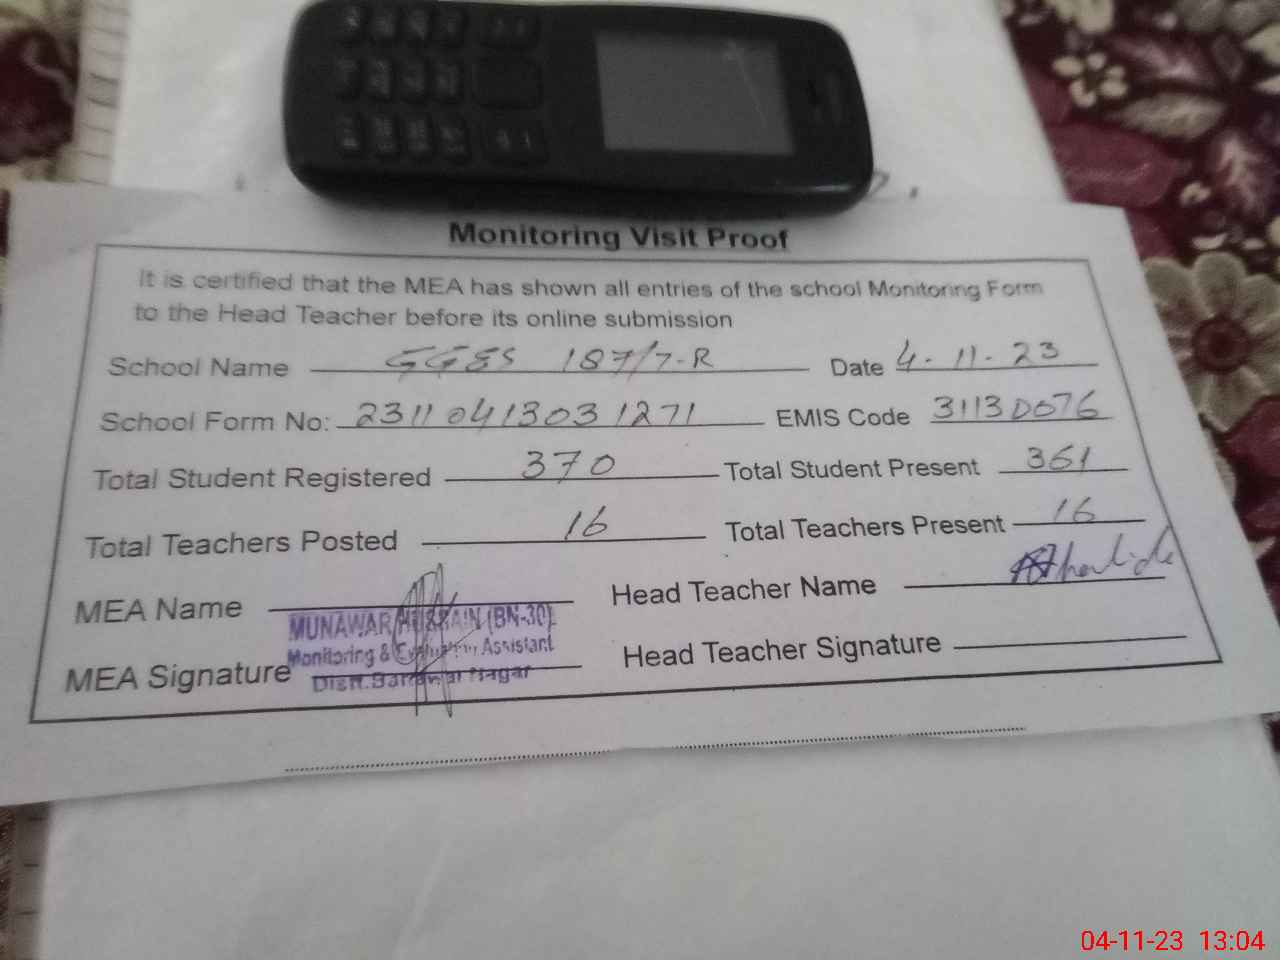 Monitoring Visit Proof
It is certified that the MEA has shown all entries of the school Monitoring Form
to the Head Teacher before its online submission
School Name GGES 187/7-R Date 4-11-23
School Form No: 23110413031271 EMIS Code 31130076
Total Student Registered 370 Total Student Present 361
Total Teachers Posted 16 Total Teachers Present 16
MEA Name Head Teacher Name
MUNAWAR HUSSAIN (BN-30)
Monitoring & Evaluation Assistant
MEA Signature Head Teacher Signature
Distt. Bahawal Nagar
04-11-23 13:04